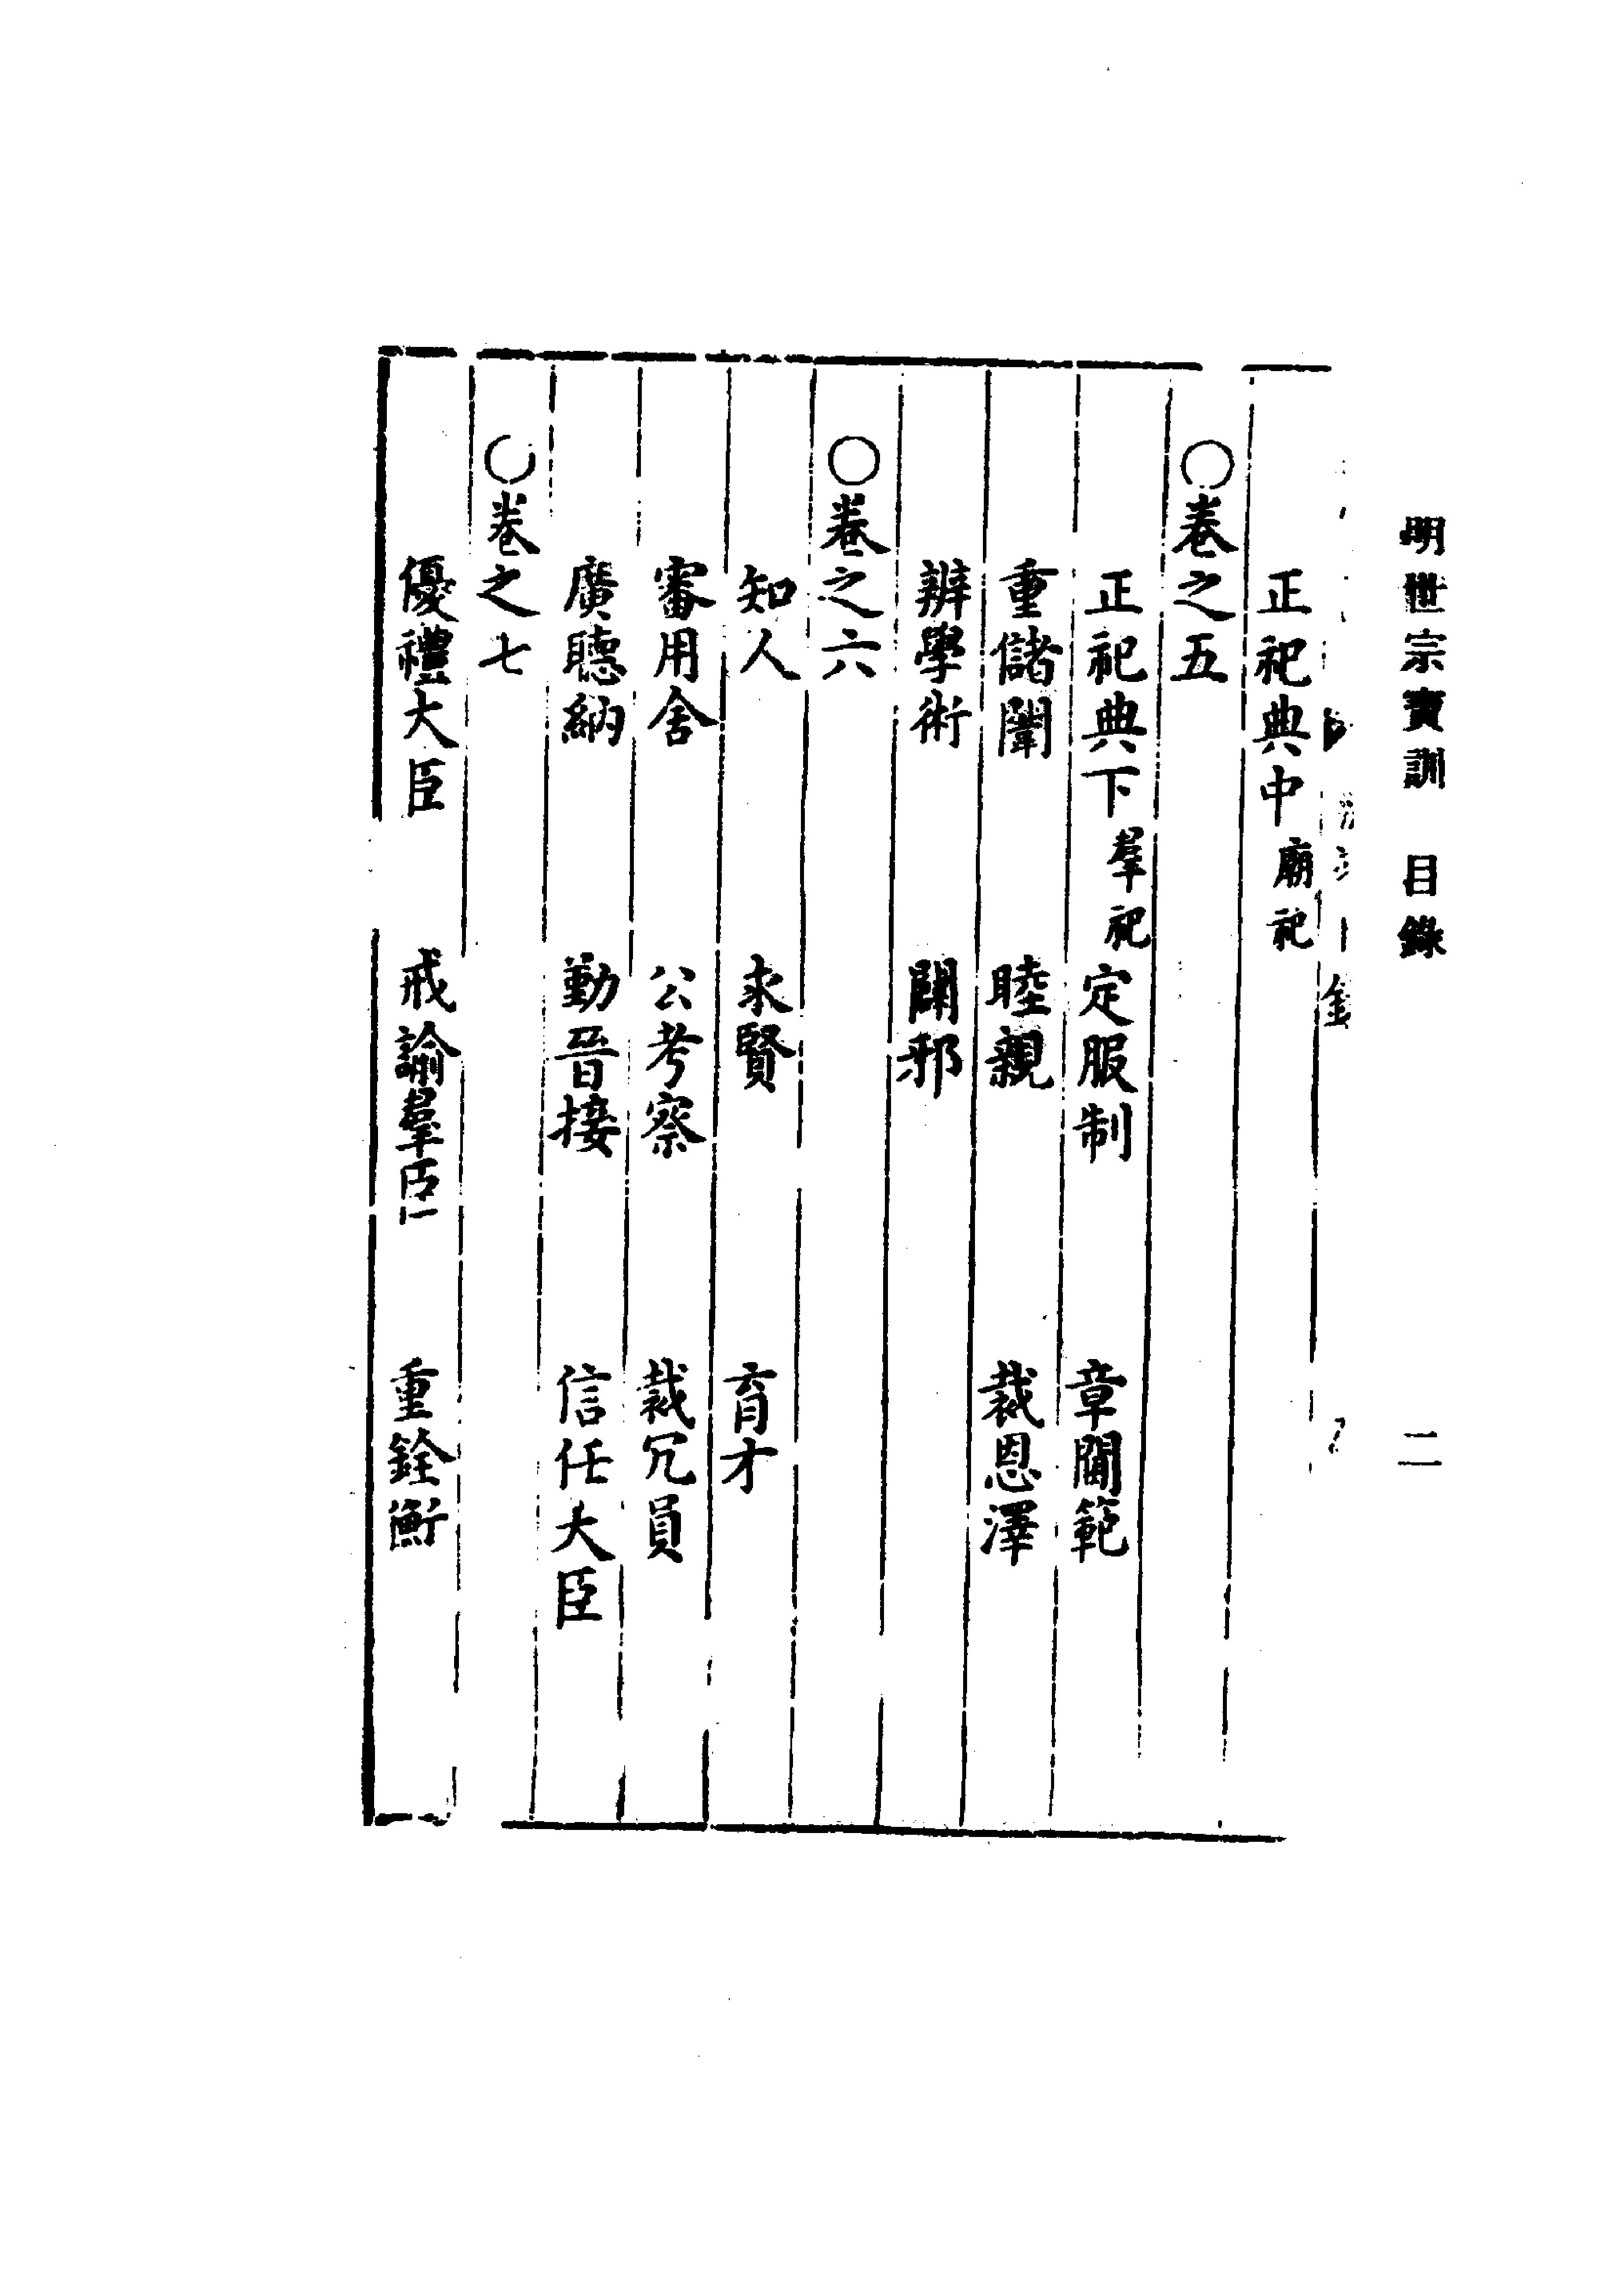 明世宗寶訓　目錄　二
正祀典中 廟祀
○卷之五
正祀典下 羣祀　定服制　章閫範
重儲闈　睦親　裁恩澤
辨學術　闢邪
○卷之六
知人　求賢　育才
審用舍　公考察　裁冗員
廣聽納　勤晉接　信任大臣
○卷之七
優禮大臣　戒諭羣臣　重銓衡